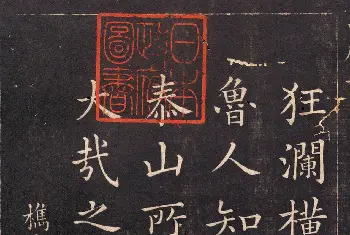 狂瀾橫
魯人知
泰山所
大哉之
樵
日本
政府
圖書